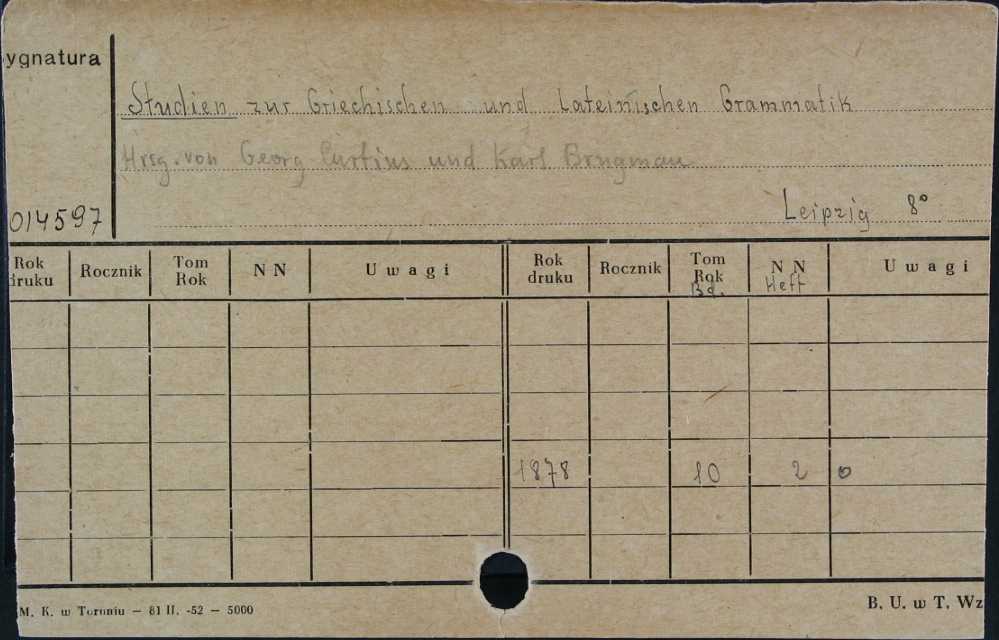 ygnatura
Studien zur Griechischen und Lateinischen Grammatik
Hrsg. von Georg Curtius und Karl Brugman
014597
Leipzig 8°
Rok druku Rocznik Tom Rok NN Uwagi Rok druku Rocznik Tom Rok Bd. NN Heft Uwagi
1878 10 2 o
M. K. w Toruniu — 81 II. -52 — 5000
B. U. w T. Wz